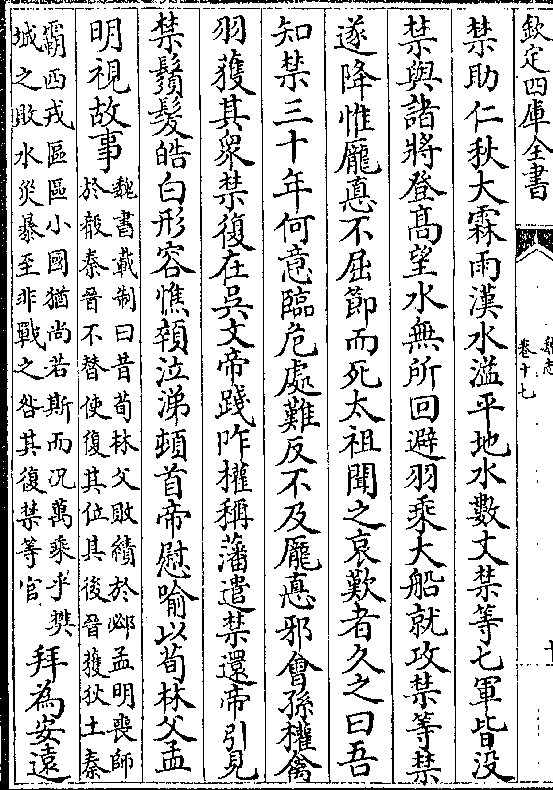 欽定四庫全書
魏志
卷十七
禁助仁秋大霖雨漢水溢平地水數丈禁等七軍皆没
禁與諸將登髙望水無所回避羽乘大船就攻禁等禁
遂降惟龎悳不屈節而死太祖聞之哀歎者久之曰吾
知禁三十年何意臨危處難反不及龎悳邪會孫權禽
羽獲其衆禁復在吳文帝踐阼權稱藩遣禁還帝引見
禁鬚髪皓白形容憔顇泣涕頓首帝慰喻以荀林父孟
明視故事
魏書載制曰昔荀林父敗績於邲孟明喪師
於殽秦晉不替使復其位其後晉獲狄土秦
霸西戎區區小國猶尚若斯而况萬乘乎樊
城之敗水災暴至非戰之咎其復禁等官
拜為安遠